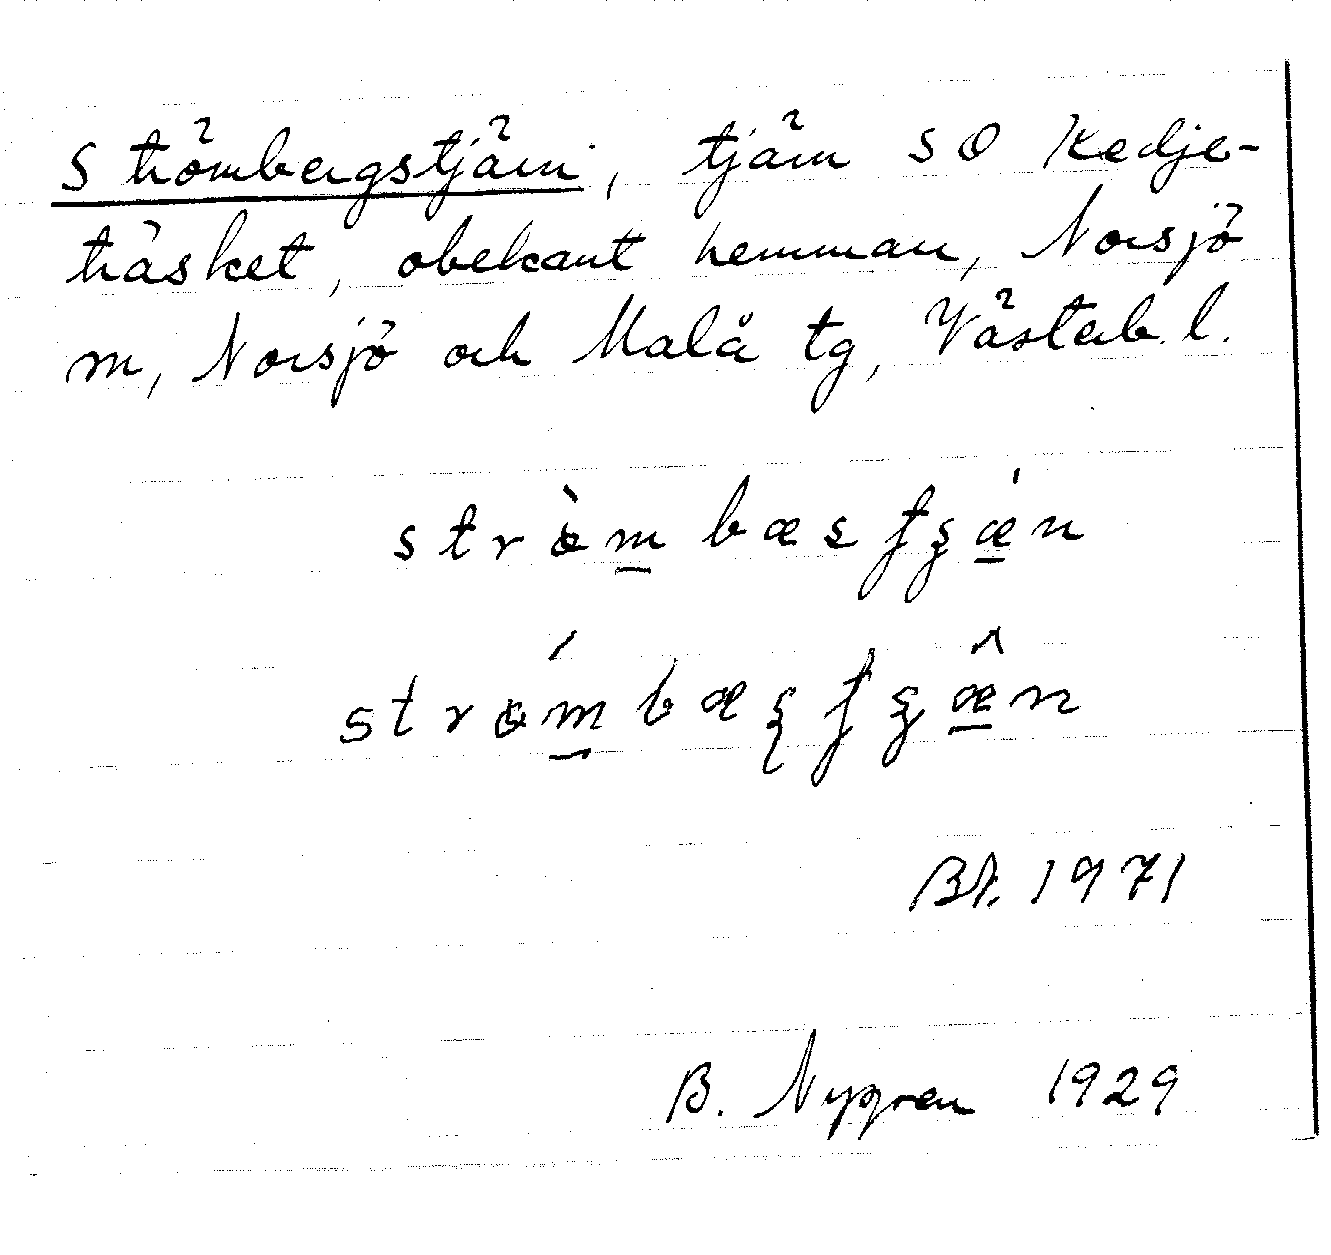 Strömbergstjärn, tjärn SO Kedje-
träsket, obekant hemman, Norsjö
m, Norsjö och Malå tg, Västerb. l.
Bt. 1971
B. Nygren 1929